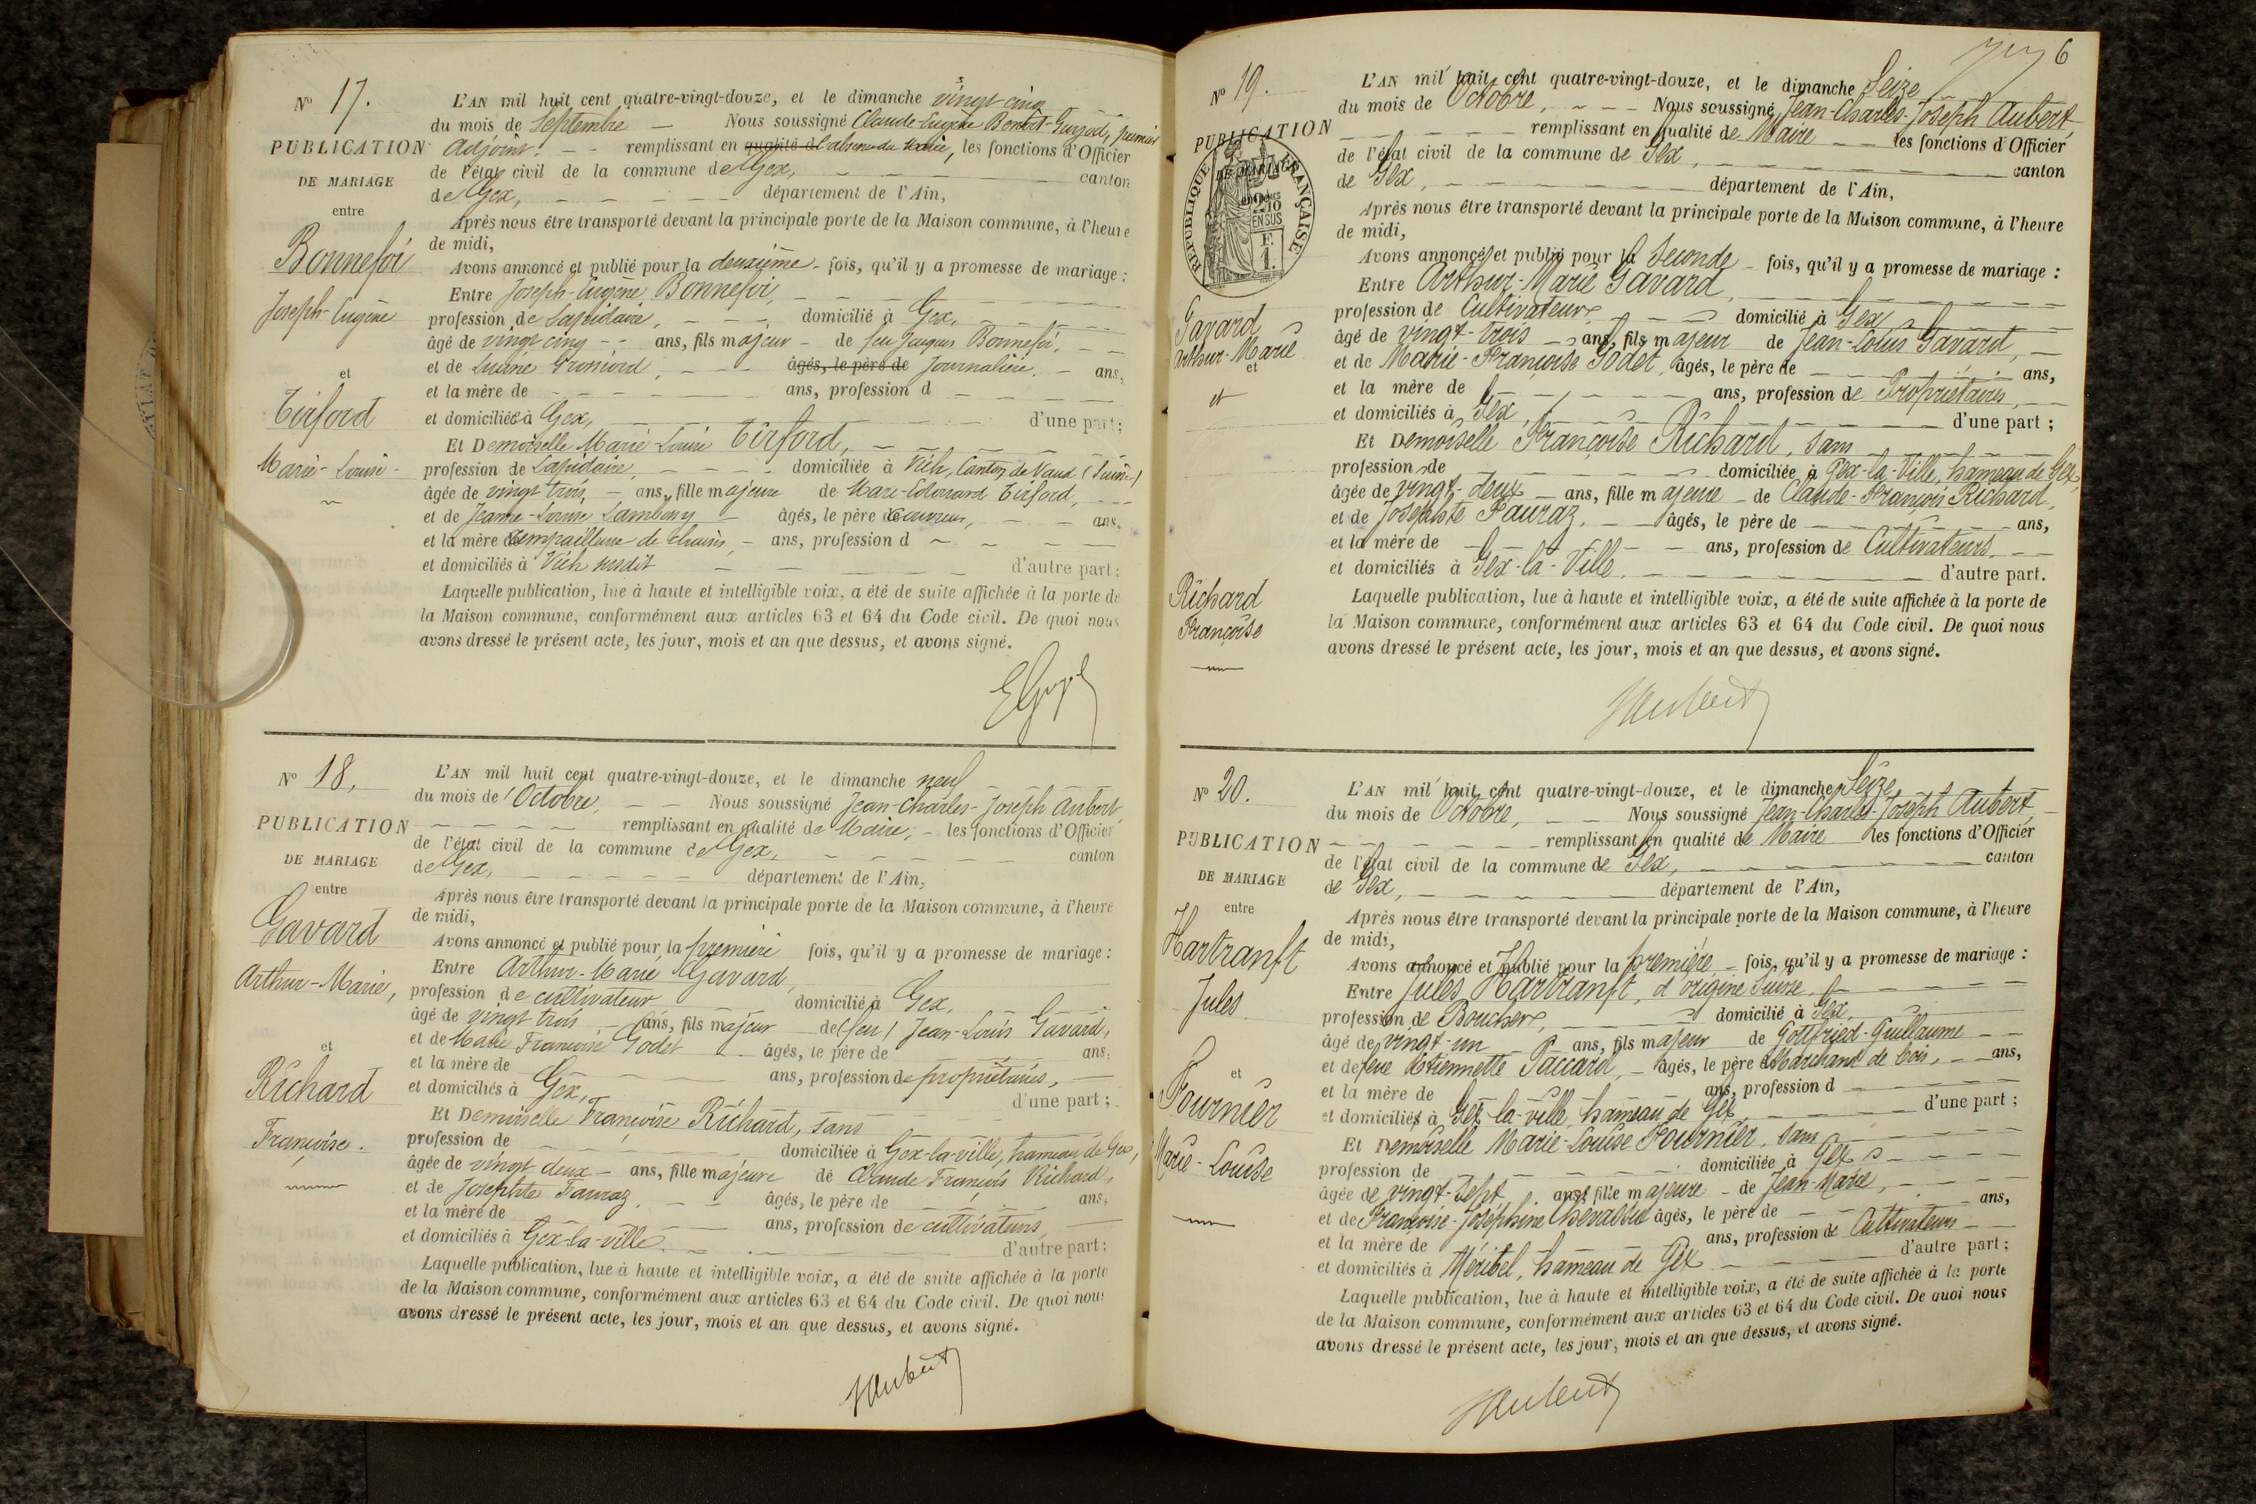 No 17.
PUBLICATION
DE MARIAGE
entre
Bonnefoi
Joseph-Eugène
et
Tirford
Marie-Louise
L'AN mil huit cent quatre-vingt-douze, et le dimanche vingt cinq
du mois de Septembre — Nous soussigné Claude-Eugène Benoit-Guyod, premier
Adjoint. - - remplissant en qualité d l'absence du Maire, les fonctions d'Officier
de l'état civil de la commune de Gex, canton
de Gex, département de l'Ain,
Après nous être transporté devant la principale porte de la Maison commune, à l'heure
de midi,
Avons annoncé et publié pour la deuxième - fois, qu'il y a promesse de mariage :
Entre Joseph-Eugène Bonnefoi,
profession de Lapidaire, domicilié à Gex,
âgé de vingt cinq -- ans, fils majeur - de feu Jacques Bonnefoi,
et de âgés, le père de Journalière. - ans,
et la mère de ans, profession d
et domiciliés à Gex, d'une part ;
Et Demoiselle Marie Louise Tirford,
profession de Lapidaire, domiciliée à Vich, Canton de Vaud (Suisse)
âgée de vingt trois, - ans, fille majeure de Marc-Edouard Tirford,
et de Jeanne-Louise Lambony âgés, le père couvreur, ans,
et la mère rempailleuse de chaises, - ans, profession d
et domiciliés à Vich susdit d'autre part ;
Laquelle publication, lue à haute et intelligible voix, a été de suite affichée à la porte de
la Maison commune, conformément aux articles 63 et 64 du Code civil. De quoi nous
avons dressé le présent acte, les jour, mois et an que dessus, et avons signé.
No 18.
PUBLICATION
DE MARIAGE
entre
Gavard
Arthur-Marie,
et
Richard
Françoise.
L'AN mil huit cent quatre-vingt-douze, et le dimanche neuf
du mois de Octobre, Nous soussigné Jean-Charles-Joseph Aubert,
remplissant en qualité de Maire, - les fonctions d'Officier
de l'état civil de la commune de Gex, canton
de Gex, département de l'Ain,
Après nous être transporté devant la principale porte de la Maison commune, à l'heure
de midi,
Avons annoncé et publié pour la première fois, qu'il y a promesse de mariage :
Entre Arthur-Marie Gavard,
profession de cultivateur domicilié à Gex,
âgé de vingt trois - ans, fils majeur de (feu) Jean-Louis Gavard,
et de Marie Françoise Godet âgés, le père de ans,
et la mère de ans, profession de propriétaires,
et domiciliés à Gex, d'une part ;
Et Demoiselle Françoise Richard, sans
profession de domiciliée à Gex-la-ville, hameau de Gex,
âgée de vingt deux - ans, fille majeure de Claude François Richard,
et de Josephte Fauraz, âgés, le père de ans,
et la mère de ans, profession de cultivateurs,
et domiciliés à Gex-la-ville. d'autre part ;
Laquelle publication, lue à haute et intelligible voix, a été de suite affichée à la porte
de la Maison commune, conformément aux articles 63 et 64 du Code civil. De quoi nous
avons dressé le présent acte, les jour, mois et an que dessus, et avons signé.
JAubert
6
No 19.
PUBLICATION
DE MARIAGE
RÉPUBLIQUE FRANÇAISE
2/10
EN SUS
F.
1.
Gavard
Arthur-Marie
et
et
Richard
Françoise
L'AN mil huit cent quatre-vingt-douze, et le dimanche Seize
du mois de Octobre, - - - Nous soussigné Jean-Charles-Joseph Aubert,
remplissant en qualité de Maire les fonctions d'Officier
de l'état civil de la commune de Gex, canton
de Gex, département de l'Ain,
Après nous être transporté devant la principale porte de la Maison commune, à l'heure
de midi,
Avons annoncé et publié pour la Seconde - fois, qu'il y a promesse de mariage :
Entre Arthur-Marie Gavard,
profession de Cultivateur, domicilié à Gex
âgé de vingt-trois - ans, fils majeur de Jean-Louis Gavard,
et de Marie-Françoise Godet, âgés, le père de ans,
et la mère de ans, profession de Propriétaires,
et domiciliés à Gex, d'une part ;
Et Demoiselle Françoise Richard, sans
profession de domiciliée à Gex-la-Ville, hameau de Gex,
âgée de vingt-deux - ans, fille majeure - de Claude-François Richard,
et de Josephte Fauraz. âgés, le père de ans,
et la mère de ans, profession de Cultivateurs.
et domiciliés à Gex-la-Ville, d'autre part.
Laquelle publication, lue à haute et intelligible voix, a été de suite affichée à la porte de
la Maison commune, conformément aux articles 63 et 64 du Code civil. De quoi nous
avons dressé le présent acte, les jour, mois et an que dessus, et avons signé.
JAubert
No 20.
PUBLICATION
DE MARIAGE
entre
Hartranft
Jules
et
Fournier
Marie-Louise
L'AN mil huit cent quatre-vingt-douze, et le dimanche Seize
du mois de Octobre, Nous soussigné Jean-Charles-Joseph Aubert,
remplissant en qualité de Maire les fonctions d'Officier
de l'état civil de la commune de Gex, canton
de Gex, département de l'Ain,
Après nous être transporté devant la principale porte de la Maison commune, à l'heure
de midi,
Avons annoncé et publié pour la première - fois, qu'il y a promesse de mariage :
Entre Jules Hartranft, d'origine Suisse,
profession de Boucher, domicilié à Gex,
âgé de vingt-un ans, fils majeur de Gottfried-Guillaume
et de feue Etiennette Paccard, - âgés, le père Marchand de bois, ans,
et la mère de ans, profession d
et domiciliés à Gex-la-ville, hameau de Gex, d'une part ;
Et Demoiselle Marie-Louise Fournier, sans
profession de domiciliée à Gex
âgée de vingt-sept, ans, fille majeure - de Jean-Marie,
et de Françoise-Joséphine Chevassu âgés, le père de ans,
et la mère de ans, profession de Cultivateurs
et domiciliés à Méribel, hameau de Gex d'autre part ;
Laquelle publication, lue à haute et intelligible voix, a été de suite affichée à la porte
de la Maison commune, conformément aux articles 63 et 64 du Code civil. De quoi nous
avons dressé le présent acte, les jour, mois et an que dessus, et avons signé.
JAubert